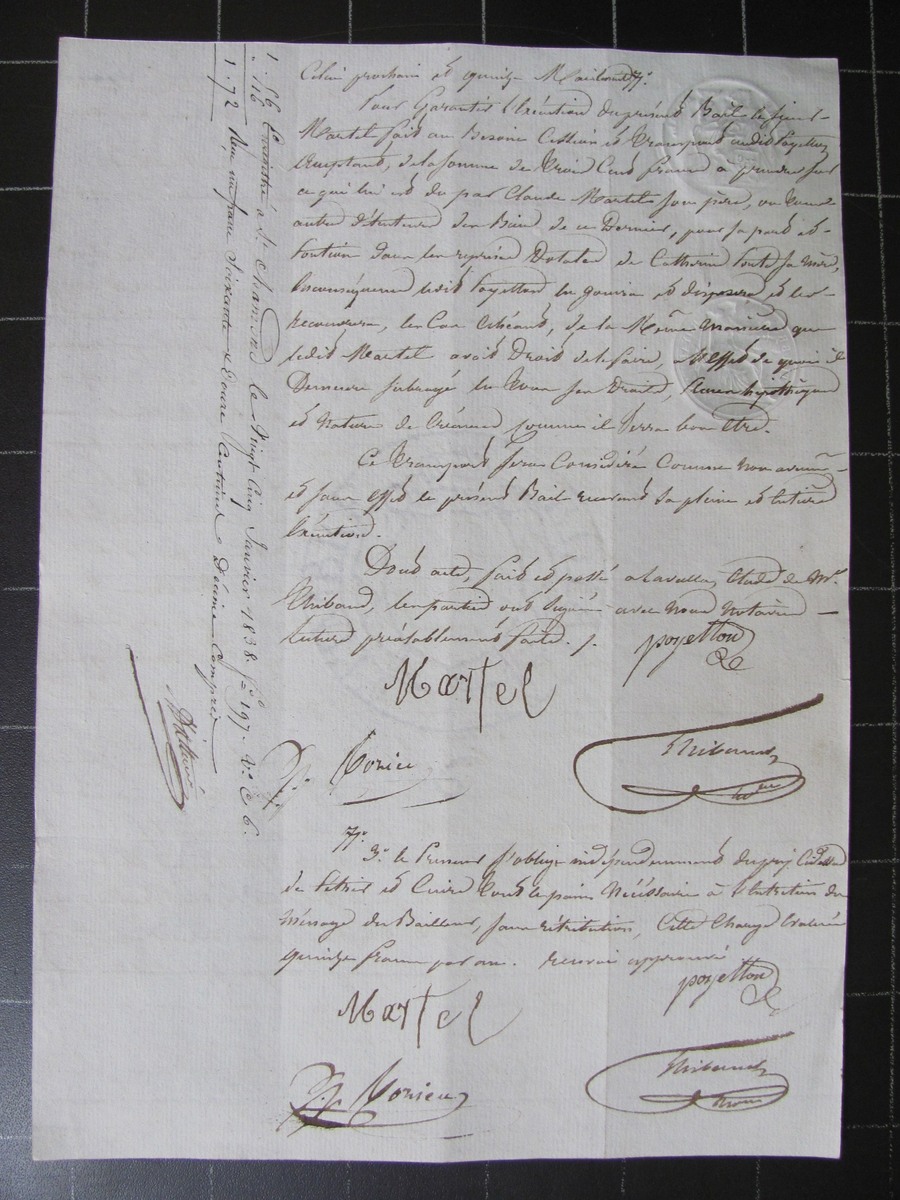 Celui prochain et quinze Mai
Pour Garantir l'Exécution du présent Bail le sieur
Martel fait au Besoin Cession et Transport audit Poyetton
acceptant, de la somme de Trois Cens francs a prendre sur
ce qui lui est du par Claude Martel son père, ou tous
autres détenteurs des Biens de ce Dernier, pour sa part et
Portion dans les reprises Dotales de Catherine sa Mère,
Conséquence ledit Poyetton en jouira et disposera et les
recouvrera, le Cas échéant, de la Même Manière que
ledit Martel avait Droit de le faire, a l'effet de quoi il
Demeure subrogé en tous ses Droits, hypothèques
et Nature de Créances comme il verra bon être.
Ce Transport sera Considéré Comme Non avenu
et sans effet le présent Bail recevant sa pleine et Entière
Exécution.
Dont acte, fait et passé a Lavalla, Etude de Mr.
Thibaud, les parties ont signé avec Nous Notaires
Lecture préalablement faite ./.
poyetton
Martel
Thibaud
nre
3° le Preneur s'oblige indépendamment du prix Cidessus
de Pétrir et Cuire tout le pain Nécéssaire à l'Entretien du
Ménage du Bailleur, sans rétribution, Cette Charge Evaluée
quinze francs par an. renvoi approuvé
poyetton
Martel
Thibaud
1. 56
. 16
1. 72
Enregistré à St. Chamond le Vingt Cinq Janvier 1838. fo 197. Vo C. 6.
Reçu un franc Soixante Douze Centimes Décime Compris